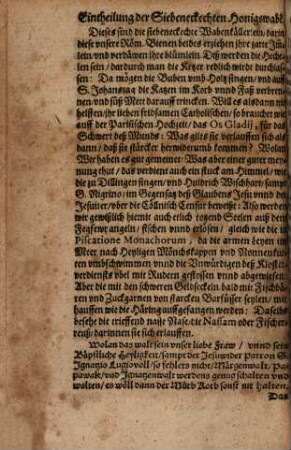 Eintheilung der Siebeneckechten Honigswabē.
Dieses sind die siebeneckechte Wabenkåller/ein/darin
diese vnsere Rőm. Bienen beides erziehen jhre zarte Jme-
lein vnd verdåwen jhre blůmlein. Diß werden die Hech-
lein sein/ dardurch man die Ketzer redlich wirdt durchlas-
sen: Da mőgen die Buben vmb Holtz singen/ vnd auff
S. Johanstag die Katzen im Korb vnnd Faß verbren-
nen/ vnd sůß Meet darauff trincken. Will es alsdann nit
helffen/ jhr lieben fridsamen Catholischen/ so brauchet wie
auff der Parisischen Hochzeit/ das Os Gladij, für das
Schwert deß Munds: Was gilts sie verlauffen sich als
dann/ daß sie stårcker herwiderumb kommen? Wolan
Wir haben es gut gemeinet: Was aber einer guter mey-
nung thut/ das verdient auch ein stuck am Himmel/ wie
die zu Dillingen singen/ vnd Huldrich Wischhart/ sampt
G. Nigrino/ im Gegensatz deß Glaubens Jesu vnnd der
Jesuiter/ vber die Cőllnisch Censur beweißt: Also werden
wir gewißlich hiemit auch etlich tozend Seelen auß dem
Fegfewr angeln/ fischen vnnd erlősen/ gleich wie die in
Piscatione Monachorum, da die armen seelen im
Meer nach Heyligen Mőnchskappen vnd Nonnenkun-
cken vmbschwimmen/ vnnd die Vnwůrdigen deß Kloster-
verdiensts vbel mit Rudern gestossen vnnd abgewiesen:
Aber die mit den schweren Geldseckeln bald mit Fischbå-
ren vnd Zuckgarnen von starcken Barfůsser seylen/ mit
hauffen wie die Håring auffgefangen werden: Daselbs
besehe die trieffend nasse Nase, die Nassam oder Fischer-
reuß/ darinnen sie sich erlauffen.
Wolan das walt sein vnser liebe Fraw/ vnnd sein
Båpstliche Heyligkeit/ sampt der Jesuwider patron S.
Ignatio Lugiovoll/ so fehlers nicht/ Mårgenwalt/ Pa-
pawalt/ vnd Ignatzenwalt werdens genug schalten vnd
walten/ es wőll dann der Mürb Korb sonst nit halten.
Das